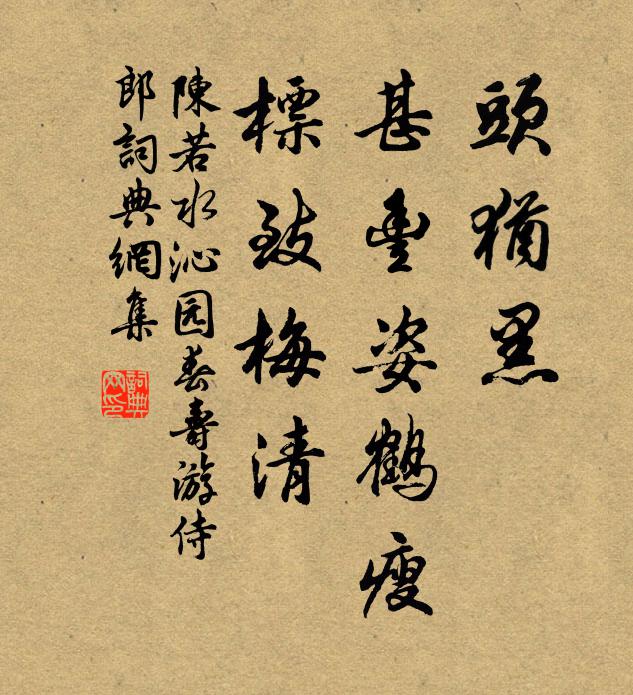 頭猶黑
甚豐姿鶴瘦
標致梅清
陳若水沁园春壽游侍
郎詞典網集
詞典網印